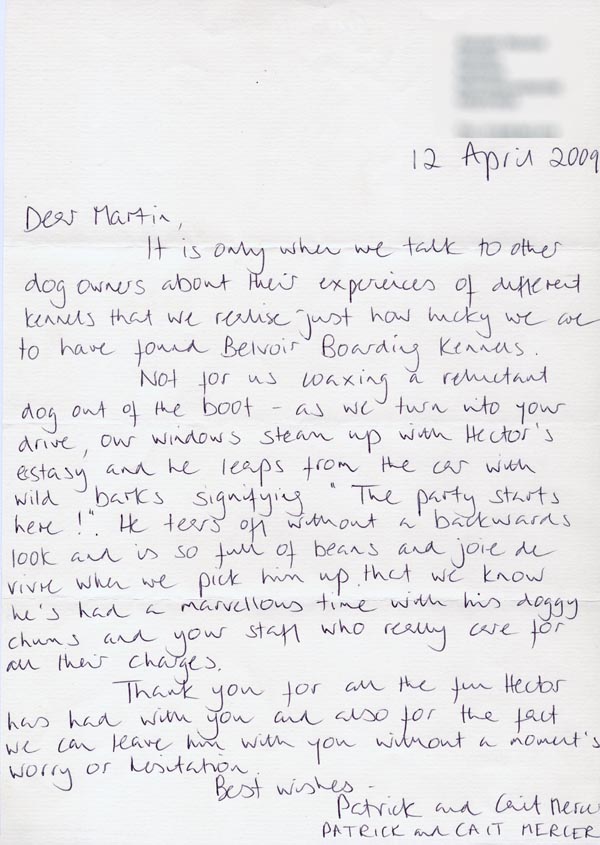 12 April 2009
Dear Martin,
It is only when we talk to other
dog owners about their experiences of different
kennels that we realise just how lucky we are
to have found Belvoir Boarding Kennels.
Not for us coaxing a reluctant
dog out of the boot - as we turn into your
drive, our windows steam up with Hector's
ecstasy and he leaps from the car with
wild barks signifying "The party starts
here!". He tears off without a backwards
look and is so full of beans and joie de
vivre when we pick him up that we know
he's had a marvellous time with his doggy
chums and your staff who really care for
all their charges.
Thank you for all the fun Hector
has had with you and also for the fact
we can leave him with you without a moment's
worry or hesitation.
Best wishes -
Patrick and Cait Mercer
PATRICK and CAIT MERCER